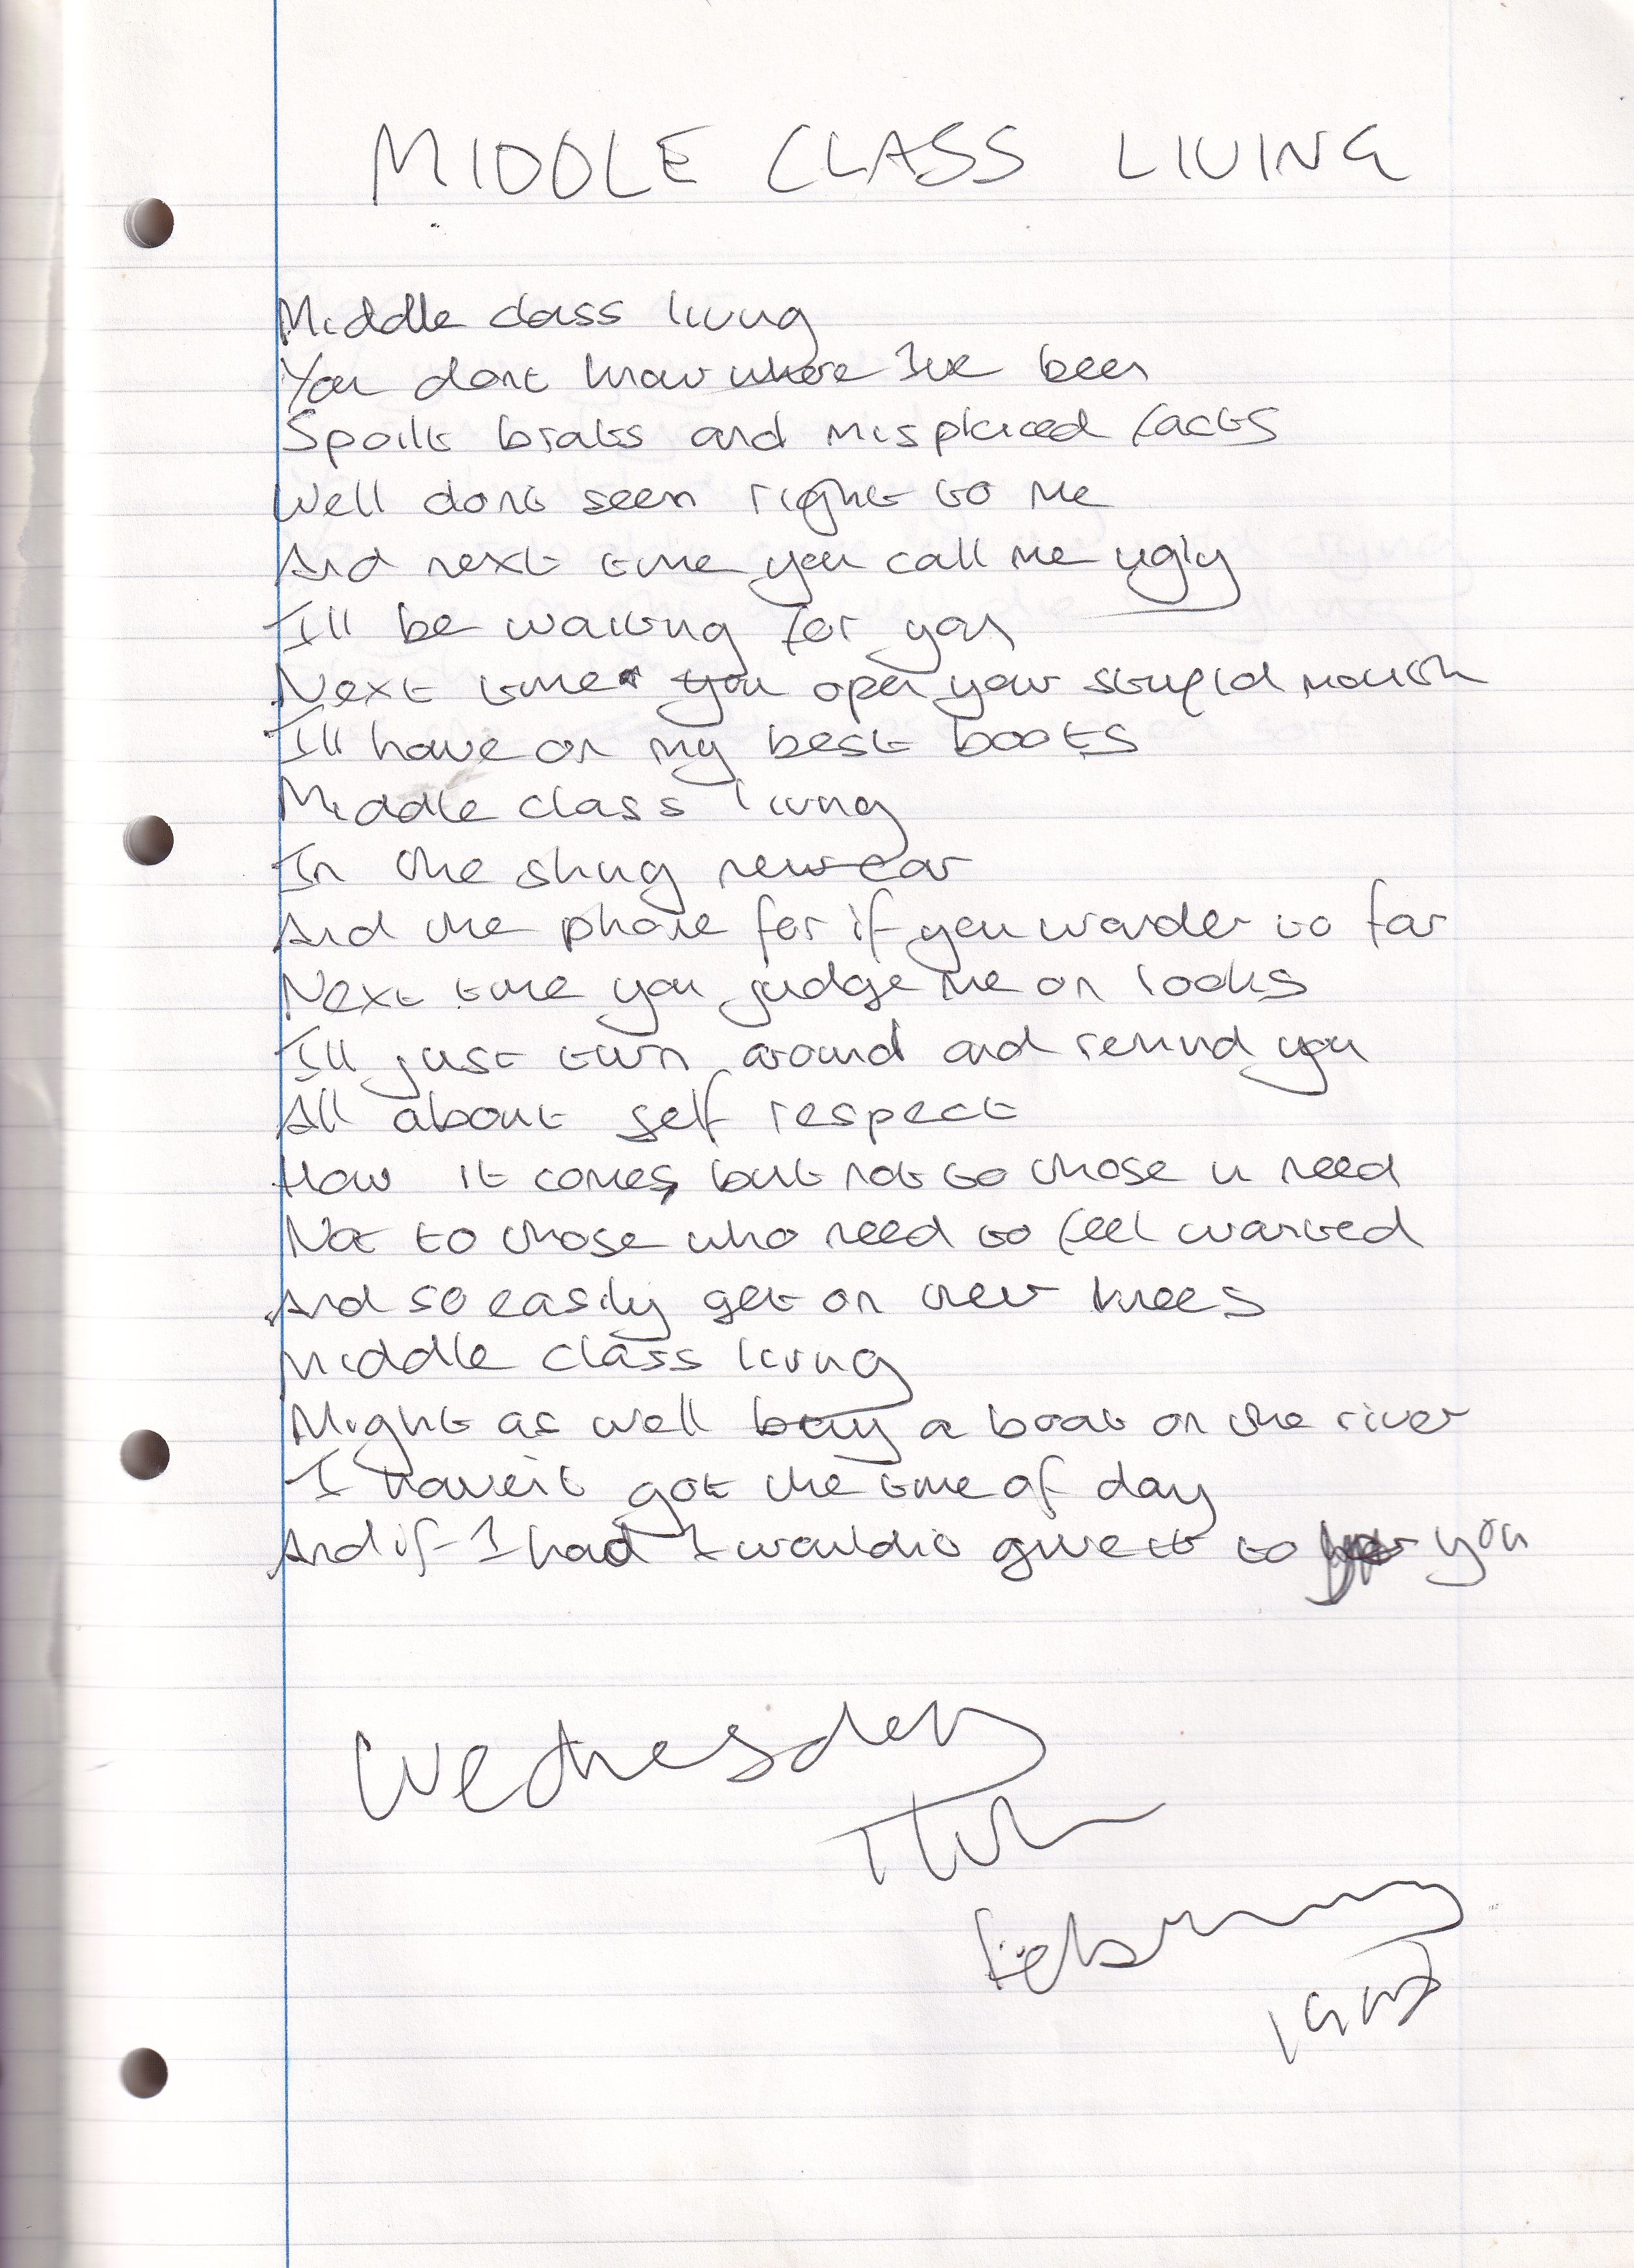 MIDDLE CLASS LIVING
Middle class living
You dont know where I've been
Spoilt brats and misplaced facts
Well dont seem right to me
And next time you call me ugly
I'll be waiting for you
Next time you open your stupid mouth
I'll have on my best boots
Middle class living
In the shiny new car
And the phone for if you wander to far
Next time you judge me on looks
I'll just turn around and remind you
All about self respect
How it comes, but not to those in need
Not to those who need to feel wanted
And so easily get on their knees
Middle class living
Might as well buy a boat on the river
I haven't got the time of day
And if I had I wouldn't give it to you
Wednesday
February